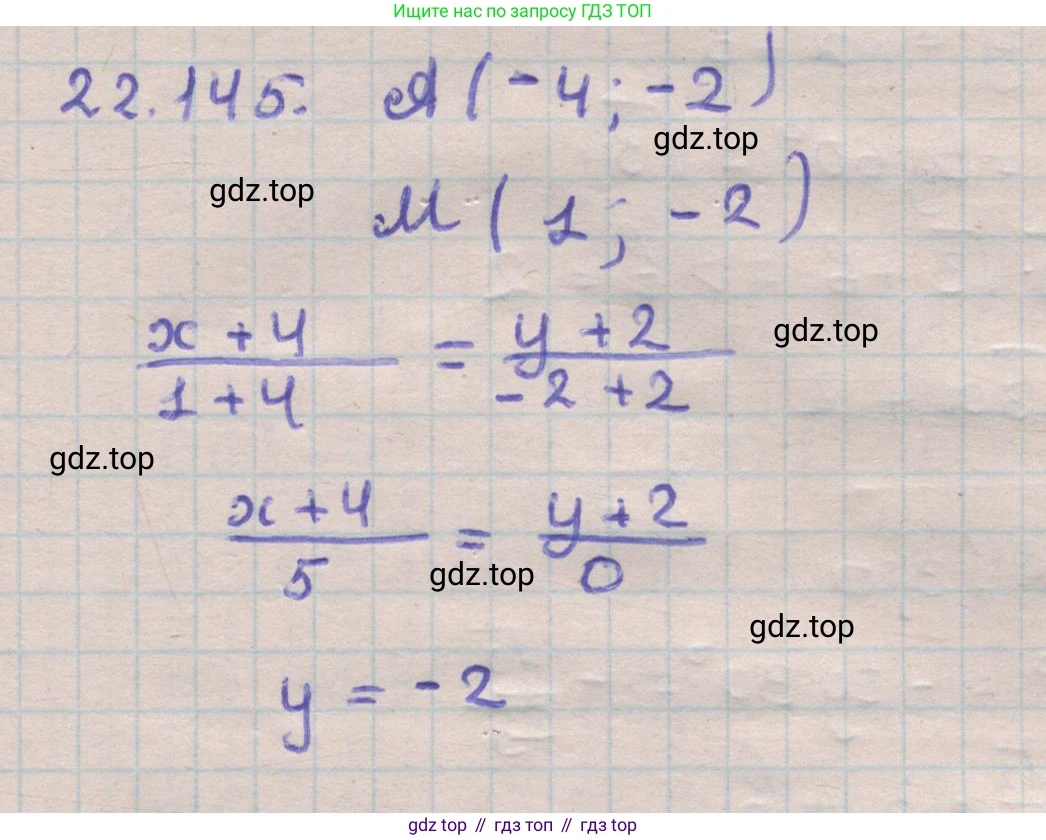 Ищите нас по запросу ГДЗ ТОП
22.145. A(-4; -2)
gdz.top
gdz.top
M(1; -2)
x + 4 = y + 2
1 + 4 -2 + 2
gdz.top
gdz.top
x + 4 = y + 2
5 0
gdz.top
gdz.top
y = -2
gdz top // гдз топ // gdz top